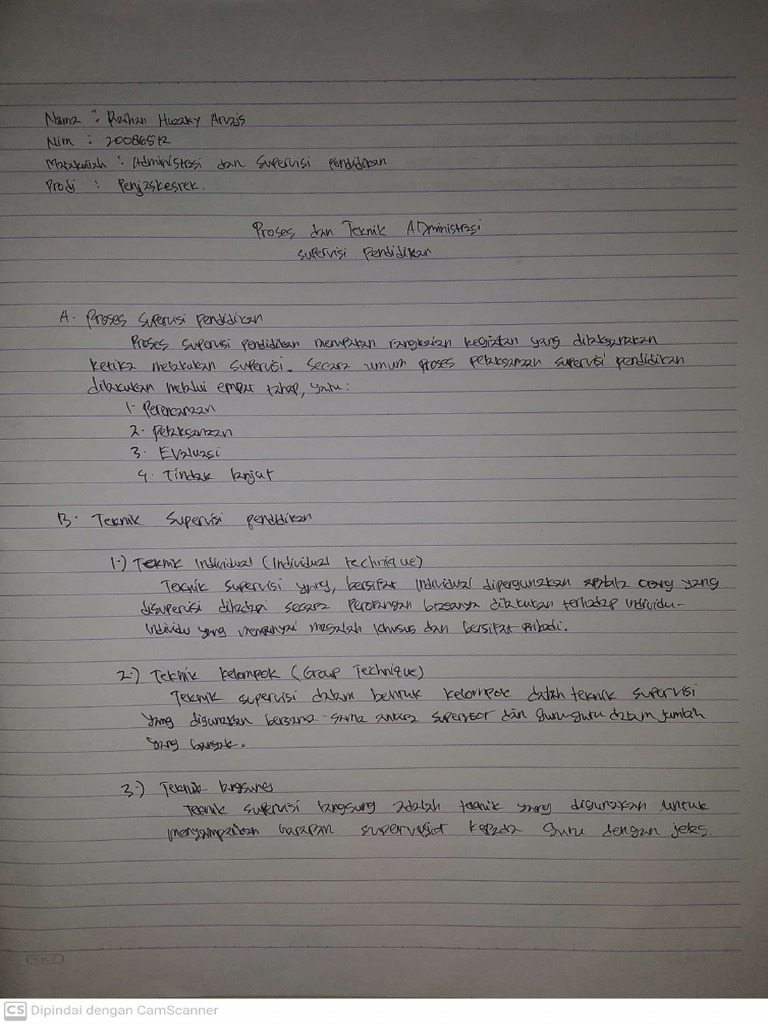 Nama : Raihan Huzaky Arvajs
Nim : 20086512
Matakuliah : Administrasi dan Supervisi pendidikan
Prodi : Penjaskesrek.
Proses dan Teknik ADministrasi
supervisi pendidikan
A. Proses Supervisi pendidikan
Proses supervisi pendidikan merupakan rangkaian kegiatan yang dilaksanakan
ketika melakukan supervisi. Secara umum proses pelaksanaan supervisi pendidikan
dilakukan melalui empat tahap, yaitu:
1. Perencanaan
2. Pelaksanaan
3. Evaluasi
4. Tindak lanjut
B. Teknik Supervisi pendidikan
1.) Teknik individual (Individual technique)
Teknik supervisi yang, bersifat individual dipergunakan apabila orang yang
disupervisi dihadapi secara perorangan biasanya dilakukan terhadap individu-
individu yang mempunyai masalah khusus dan bersifat pribadi.
2.) Teknik kelompok (Group Technique)
Teknik supervisi dalam bentuk kelompok dalah teknik supervisi
yang digunakan bersama-sama antara supervisor dan guru-guru dalam jumlah
yang banyak.
3.) Teknik langsung
Teknik supervisi langsung adalah teknik yang digunakan untuk
menyampaikan harapan supervesior kepada guru dengan jelas.
CS Dipindai dengan CamScanner